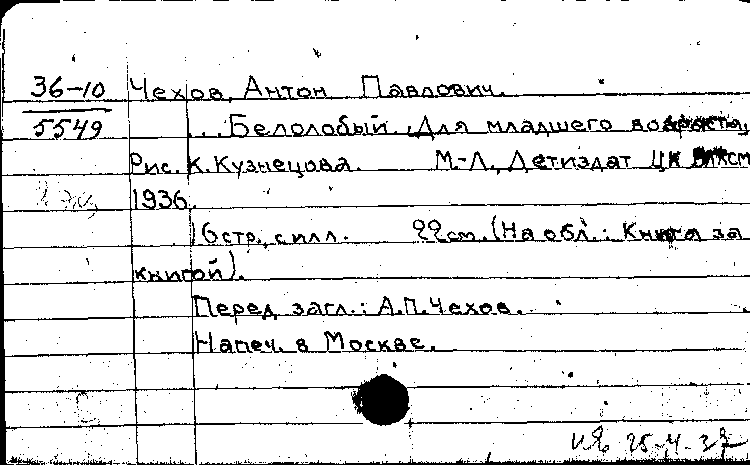 36-10 Чехов, Антон Павлович.
5549 ...Белолобый. Для младшего возраста,
Рис. К. Кузнецова. М.-Л., Детиздат ЦК ВЛКСМ
1936.
16 стр. с илл. 22 см. (На обл.: Книга за
книгой).
Перед загл.: А.П. Чехов.
Напеч. в Москве.
25-4-37